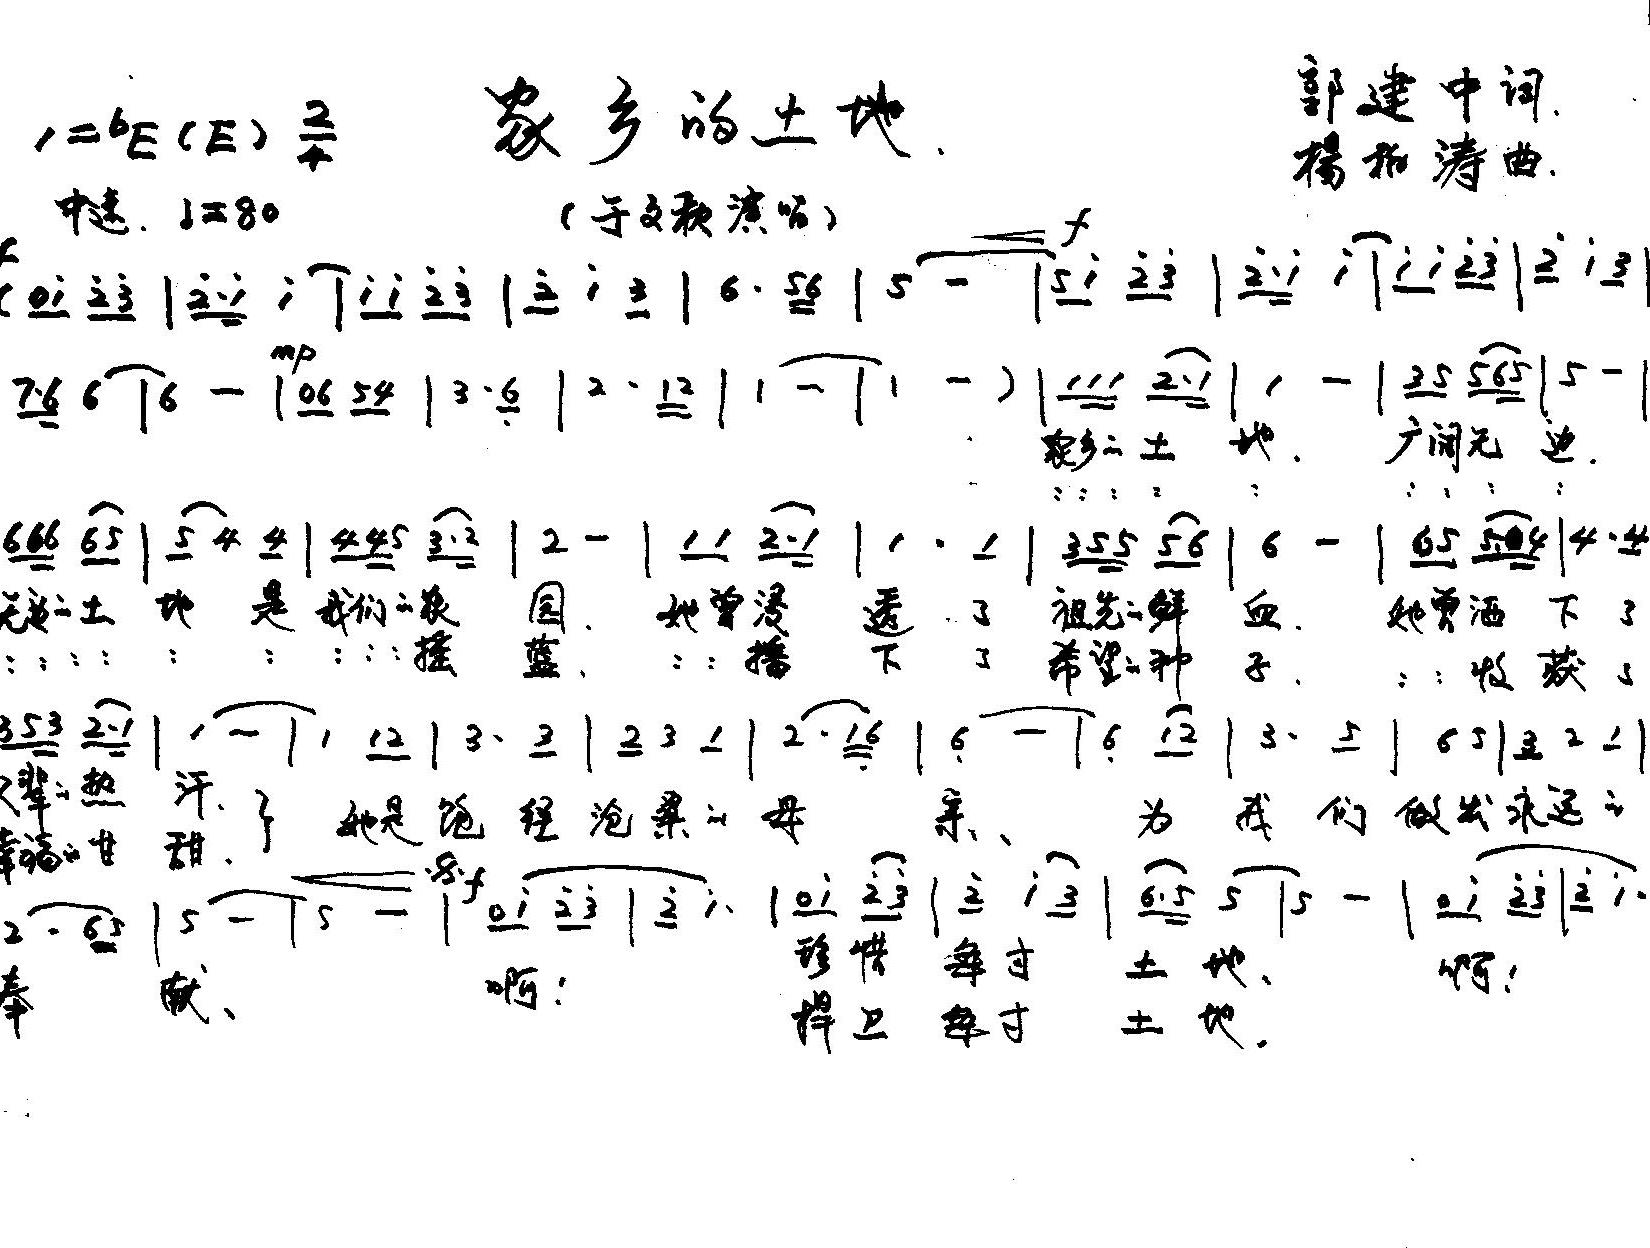 家乡的土地.
郭建中词.
1=bE(E) 2/4
杨柏涛曲.
中速. ♩=80
(于文歌演唱)
f
(0i 23|2·i i|ii 23|2 i 3|6·56|5 -|5i 23|2·i i|ii 23|2 i 3|
mp
7·6 6|6 -|06 54|3·6|2·12|1 -|1 -)|111 2·1|1 -|35 565|5 -|
家乡的土地. 广阔无边.
666 65|5 4 4|445 3·2|2 -|11 2·1|1·1|355 56|6 -|65 5·04|4·4
无边的土地是我们的家园. 她曾浸透了祖先的鲜血. 她曾洒下了
::::::::: 摇篮. :: 播下了希望的种子. :: 收获了
353 2·1|1 -|1 12|3·3|2 3 1|2·16|6 -|6 12|3·5|6 5|3 2 1|
父辈的热汗.} 她是饱经沧桑的母亲、为我们做出永远的
幸福的甘甜.
f
2·65|5 -|5 -|0i 23|2 i·|0i 23|2 i 3|6·5 5|5 -|0i 23|2 i·
奉献、啊! 珍惜每寸土地、啊!
捍卫每寸土地.